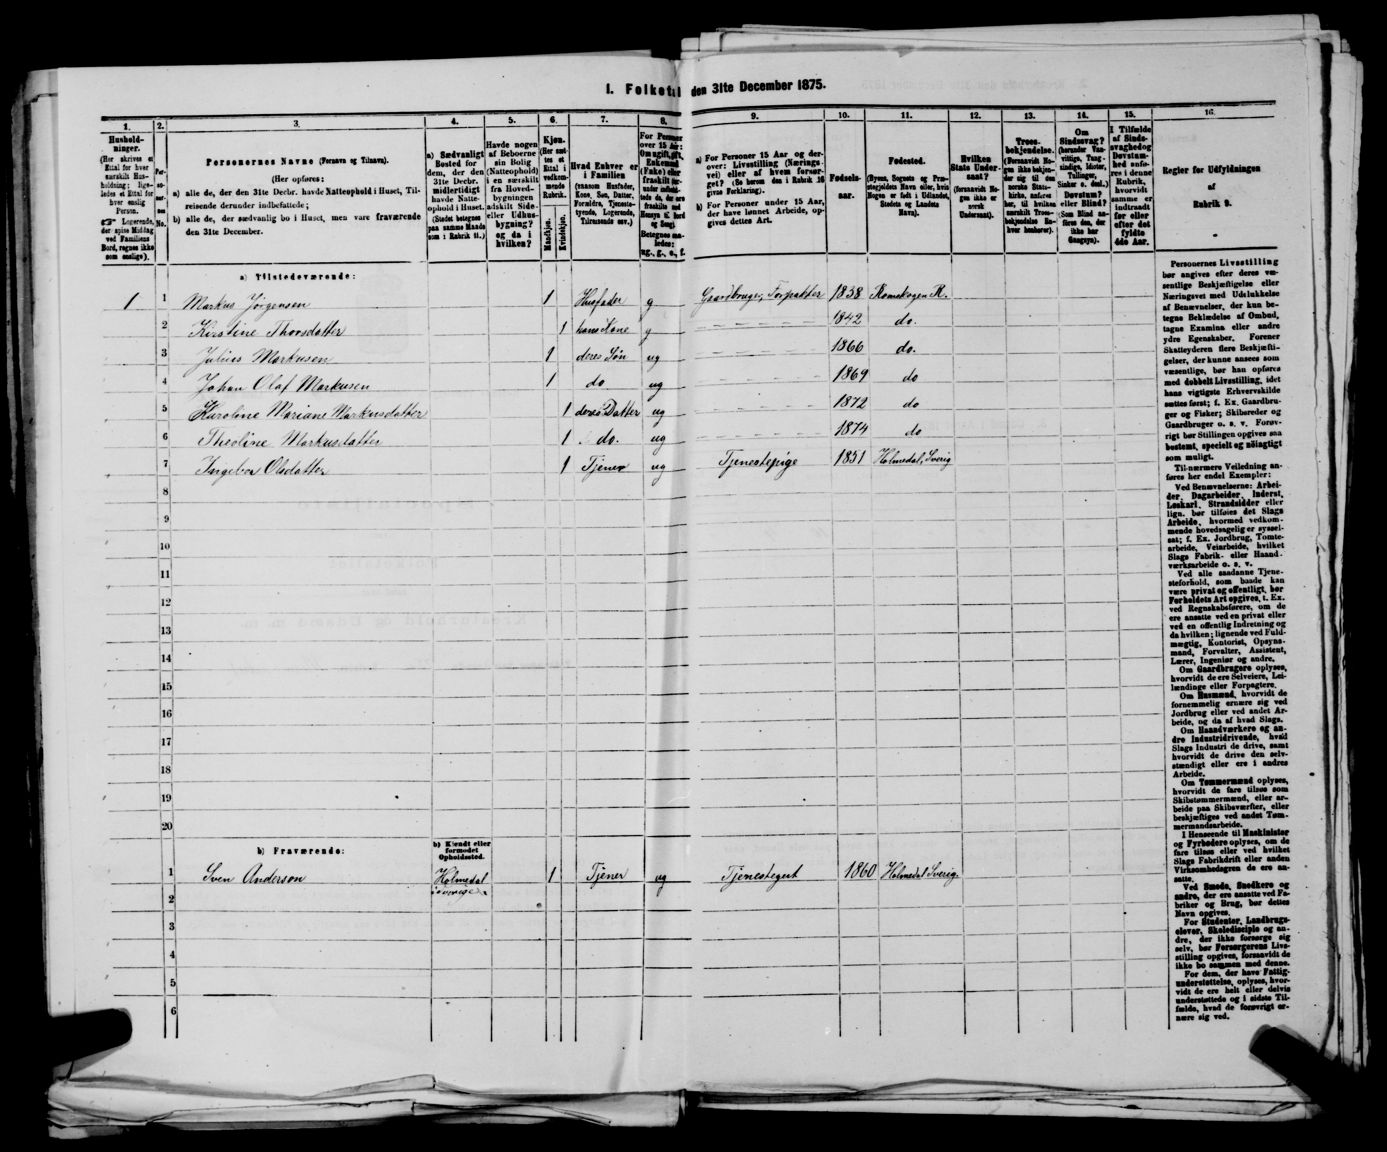 I. Folketal den 31te December 1875.
1. 2. 3. 4. 5. 6. 7. 8. 9. 10. 11. 12. 13. 14. 15. 16.
Personernes Navne (Fornavn og Tilnavn).
(Her opføres:
a) alle de, der den 31te Decbr. havde Natteophold i Huset, Tilreisende derunder indbefattede;
b) alle de, der sædvanlig bo i Huset, men vare fraværende den 31te December.
a) Sædvanligt Bosted for dem, der den 31te Decbr. midlertidigt havde Natteophold i Huset.
Havde nogen af Beboerne sin Bolig (Natteophold) i en særskilt fra Hovedbygningen adskilt Side- eller Udhusbygning? og da i hvilken?
Kjøn.
Mandkjøn. Kvindekjøn.
Hvad Enhver er i Familien
a) For Personer 15 Aar og derover: Livsstilling (Næringsvei) eller af hvem forsørget? (Se herom den i Rubrik 16 givne Forklaring).
b) For Personer under 15 Aar, der have lønnet Arbeide, opgives dettes Art.
Fødselsaar.
Fødested.
(Byens, Sognets og Præstegjeldets Navn eller, hvis Nogen er født i Udlandet, Stedets og Landets Navn).
Hvilken Stats Undersaat?
(forsaavidt Nogen ikke er norsk Undersaat).
Troesbekjendelse.
Om Sindssvag?
Døvstum? eller Blind?
I Tilfælde af Sindssvaghed og Døvstumhed anføres i denne Rubrik, hvorvidt samme er indtraadt før eller efter det fyldte 4de Aar.
Regler for Udfyldningen af Rubrik 9.
a) Tilstedeværende:
1 1 Markus Jörgensen 1 Husfader g Gaardbruger, Forpakter 1838 Romskogen K.
2 Kirstine Thorsdatter 1 hans Kone g 1842 do.
3 Julius Markusen 1 deres Søn ug 1866 do.
4 Johan Olaf Markusen 1 do ug 1869 do
5 Karoline Mariane Markusdatter 1 deres Datter ug 1872 do
6 Theoline Markusdatter 1 do. ug 1874 do
7 Ingebor Olsdatter 1 Tjener ug Tjenestepige 1851 Holmedal, Sverig
8
9
10
11
12
13
14
15
16
17
18
19
20
b) Fraværende:
b) Kjendt eller formodet Opholdssted.
1 Sven Anderson Holmedal i Sverige 1 Tjener ug Tjenestegut 1860 Holmedal Sverig.
2
3
4
5
6
Personernes Livsstilling bør angives efter deres væsentlige Beskjæftigelse eller Næringsvei med Udelukkelse af Benævnelser, der kun betegne Beklædelse af Ombud, tagne Examina eller andre ydre Egenskaber. Forener Skatteyderen flere Beskjæftigelser, der kunne ansees som væsentlige, bør han opføres med dobbelt Livsstilling, idet hans vigtigste Erhvervskilde sættes først; f. Ex. Gaardbruger og Fisker; Skibsreder og Gaardbruger o. s. v. Forøvrigt bør Stillingen opgives saa bestemt, specielt og nøiagtigt som muligt.
Til nærmere Veiledning anføres her endel Exempler:
Ved Benævnelserne: Arbeider, Dagarbeider, Inderst, Løskarl, Strandsidder eller lign. bør tilføies det Slags Arbeide, hvormed vedkommende hovedsagelig er sysselsat; f. Ex. Jordbrug, Tomtearbeide, Veiarbeide, hvilket Slags Fabrik- eller Haandværksarbeide o. s. v.
Ved alle saadanne Tjenesteforhold, som baade kan være privat og offentligt, bør Forholdets Art opgives, t. Ex. ved Regnskabsførere, om de ere ansatte ved en privat eller ved en offentlig Indretning og da hvilken; lignende ved Fuldmægtig, Kontorist, Opsynsmand, Forvalter, Assistent, Lærer, Ingeniør og andre.
Om Gaardbrugere oplyses, hvorvidt de ere Selveiere, Leilændinge eller Forpagtere.
Om Husmænd, hvorvidt de fornemmelig ernære sig ved Jordbrug eller ved andet Arbeide, og da af hvad Slags.
Om Haandværkere og andre Industridrivende, hvad Slags Industri de drive, samt hvorvidt de drive den selvstændigt eller ere i andres Arbeide.
Om Tømmermænd oplyses, hvorvidt de fare tilsøs som Skibstømmermænd, eller arbeide paa Skibsværfter, eller beskjæftiges ved andet Tømmermandsarbeide.
I Henseende til Maskinister og Fyrbødere oplyses, om de fare tilsøs eller ved hvilket Slags Fabrikdrift eller anden Virksomhedsgren de ere ansatte.
Ved Smede, Snedkere og andre, der ere ansatte ved Fabriker og Brug, bør dettes Navn opgives.
For Studenter, Landbrugselever, Skoledisciple og andre, der ikke forsørge sig selv, bør Forsørgerens Livsstilling opgives, forsaavidt de ikke bo sammen med denne.
For dem, der have Fattigunderstøttelse, oplyses, hvorvidt de ere helt eller delvis understøttede og i sidste Tilfælde, hvad de forøvrigt ernære sig ved.